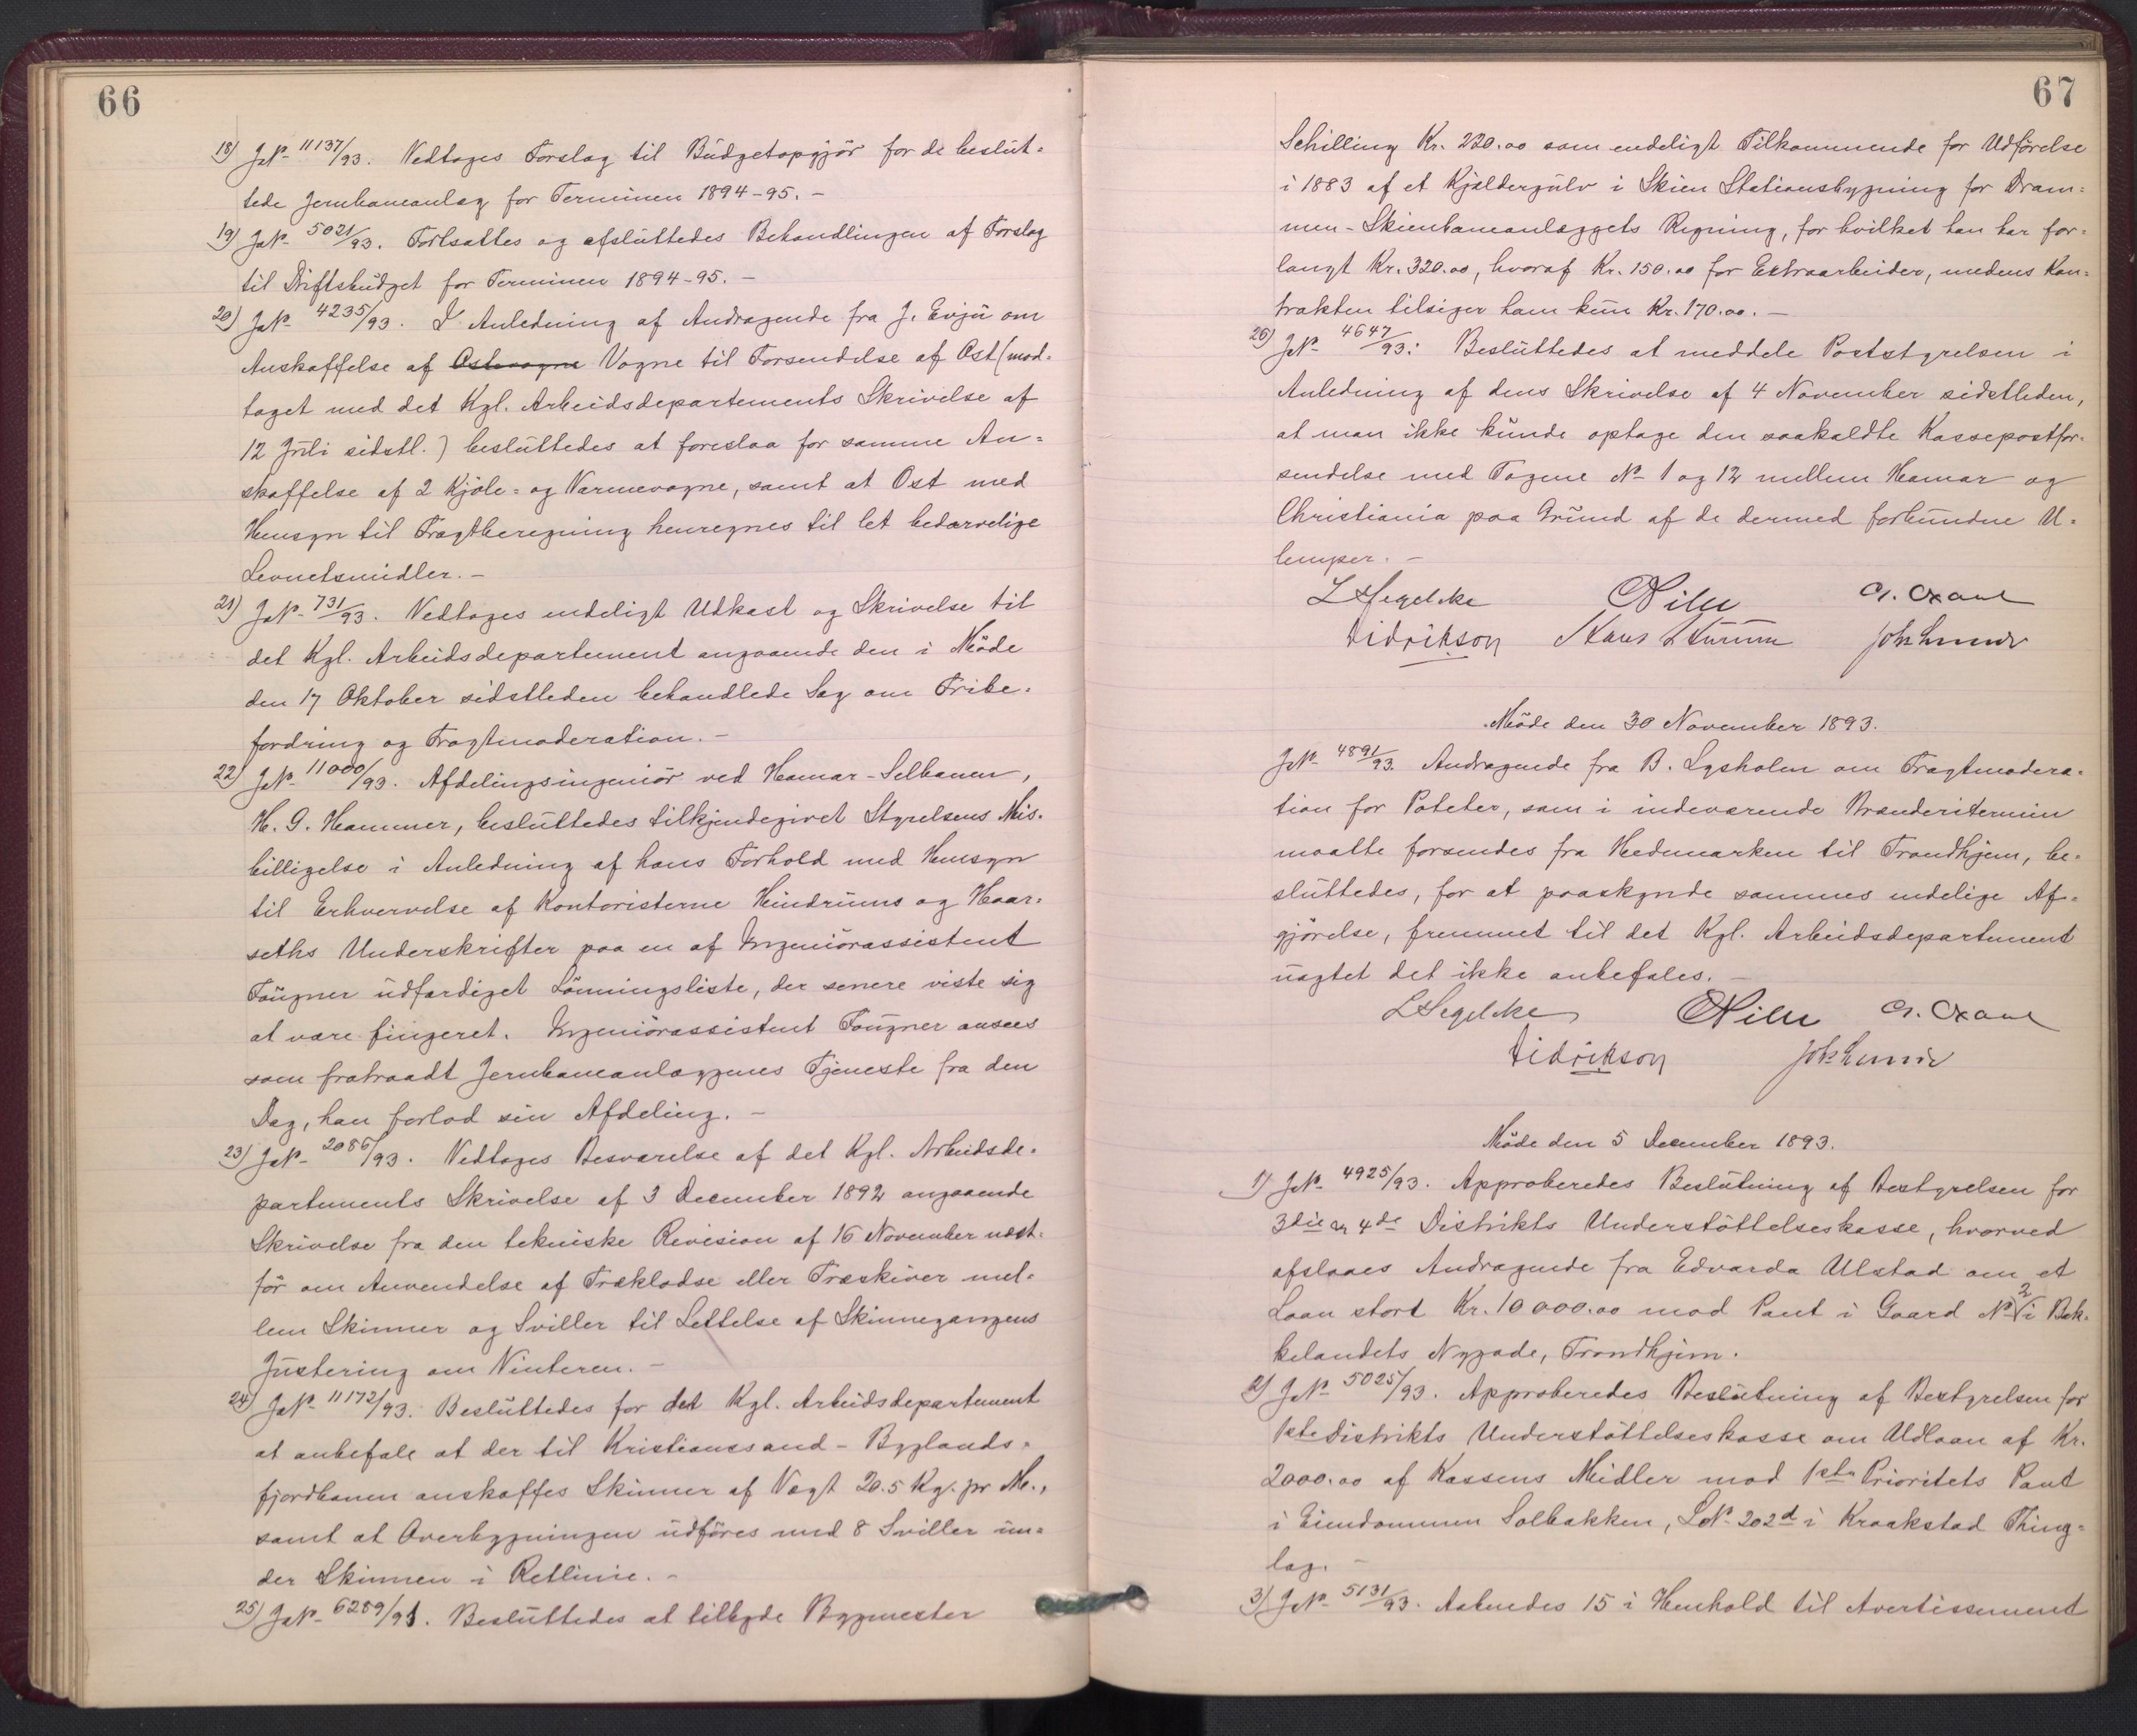 66
18) JN° 11137/93. Vedtoges Forslag til Budgetopgjör for de beslut-
tede Jernbaneanlæg for Terminen 1894-95. –
19) JN° 5021/93. Fortsattes og afsluttedes Behandlingen af Forslag
til Driftsbudget for Terminen 1894-95. –
20) JN° 4235/93. I Anledning af Andragende fra J. Evju om
Anskaffelse af Ostevogne Vogne til Forsendelse af Ost (mod-
taget med det Kgl. Arbeidsdepartements Skrivelse af
12 Juli sidstl.) besluttedes at foreslaa for samme An-
skaffelse af 2 Kjöle- og Varmevogne, samt at Ost med
Hensyn til Fragtberegning henregnes til let bedærvelige
Levnetsmidler. –
21) JN° 731/93. Vedtoges endeligt Udkast og Skrivelse til
det Kgl. Arbeidsdepartement angaaende den i Möde
den 17 Oktober sidstleden behandlede Sag om Fribe-
fordring og Fragtmoderation. –
22) JN° 11000/93. Afdelingsingeniör ved Hamar-Selbanen,
H. G. Hammer, besluttedes tilkjendegivet Styrelsens Mis-
billigelse i Anledning af hans Forhold med Hensyn
til Erhvervelse af Kontoristerne Hindrums og Haar-
seths Underskrifter paa en af Ingeniörassistent
Fougner udfærdiget Lönningsliste, der senere viste sig
at være fingeret. Ingeniörassistent Fougner ansees
som fratraadt Jernbaneanlæggenes Tjeneste fra den
Dag, han forlod sin Afdeling. –
23) JN° 2086/93. Vedtoges Besvarelse af det Kgl. Arbeidsde-
partements Skrivelse af 3 December 1892 angaaende
Skrivelse fra den tekniske Revision af 16 November næst-
för om Anvendelse af Træklodse eller Træskiver mel-
lem Skinner og Sviller til Lettelse af Skinnegangens
Justering om Vinteren. –
24) JN° 11172/93. Besluttedes for det Kgl. Arbeidsdepartement
at anbefale at der til Kristianssand-Byglands-
fjordbanen anskaffes Skinner af Vægt 20.5 Kg. pr M.,
samt at Overbygningen udföres med 8 Sviller un-
der Skinnen i Retlinie. –
25) JN° 6289/91. Besluttedes at tilbyde Bygmester
67
Schilling Kr. 220.00 som endeligt Tilkommende for Udförelse
i 1883 af et Kjældergulv i Skien Stationsbygning for Dram-
men-Skienbaneanlæggets Regning, for hvilket han har for-
langt Kr. 320.00, hvoraf Kr. 150.00 for Extraarbeider, medens Kon-
trakten tilsiger ham kun Kr. 170.00. –
26) JN° 4647/93: Besluttedes at meddele Poststyrelsen i
Anledning af dens Skrivelse af 4 November sidstleden,
at man ikke kunde optage den saakaldte Kassepostfor-
sendelse med Togene N° 1 og 12 mellem Hamar og
Christiania paa Grund af de dermed forbundne U-
lemper. –
LSegelcke CPihl G. Gxaul
Didrikson Klaus Sturum Joh Lunde
Möde den 30 November 1893.
JN° 4891/93. Andragende fra B. Lysholm om Fragtmodera-
tion for Poteter, som i indeværende Brænderitermin
maatte forsendes fra Hedemarken til Trondhjem, be-
sluttedes, for at paaskynde sammes endelige Af-
gjörelse, fremmet til det Kgl. Arbeidsdepartement
uagtet det ikke anbefales. –
LSegelcke CPihl G. Gxaul
Didrikson Joh Lunde
Möde den 5 December 1893.
1) JN° 4925/93. Approberedes Beslutning af Bestyrelsen for
3die & 4de Distrikts Understöttelseskasse, hvorved
afslaaes Andragende fra Edvarda Ulstad om et
Laan stort Kr. 10000.00 mod Pant i Gaard N° 2 i Bak-
kelandets Nygade, Trondhjem.
2) JN° 5025/93. Approberedes Beslutning af Bestyrelsen for
1ste Distrikts Understöttelseskasse om Udlaan af Kr.
2000.00 af Kassens Midler mod 1ste Prioritets Pant
i Eiendommen Solbakken, LN° 202d i Kraakstad Thing-
lag. –
3) JN° 5131/93. Aabnedes 15 i Henhold til Avertissement